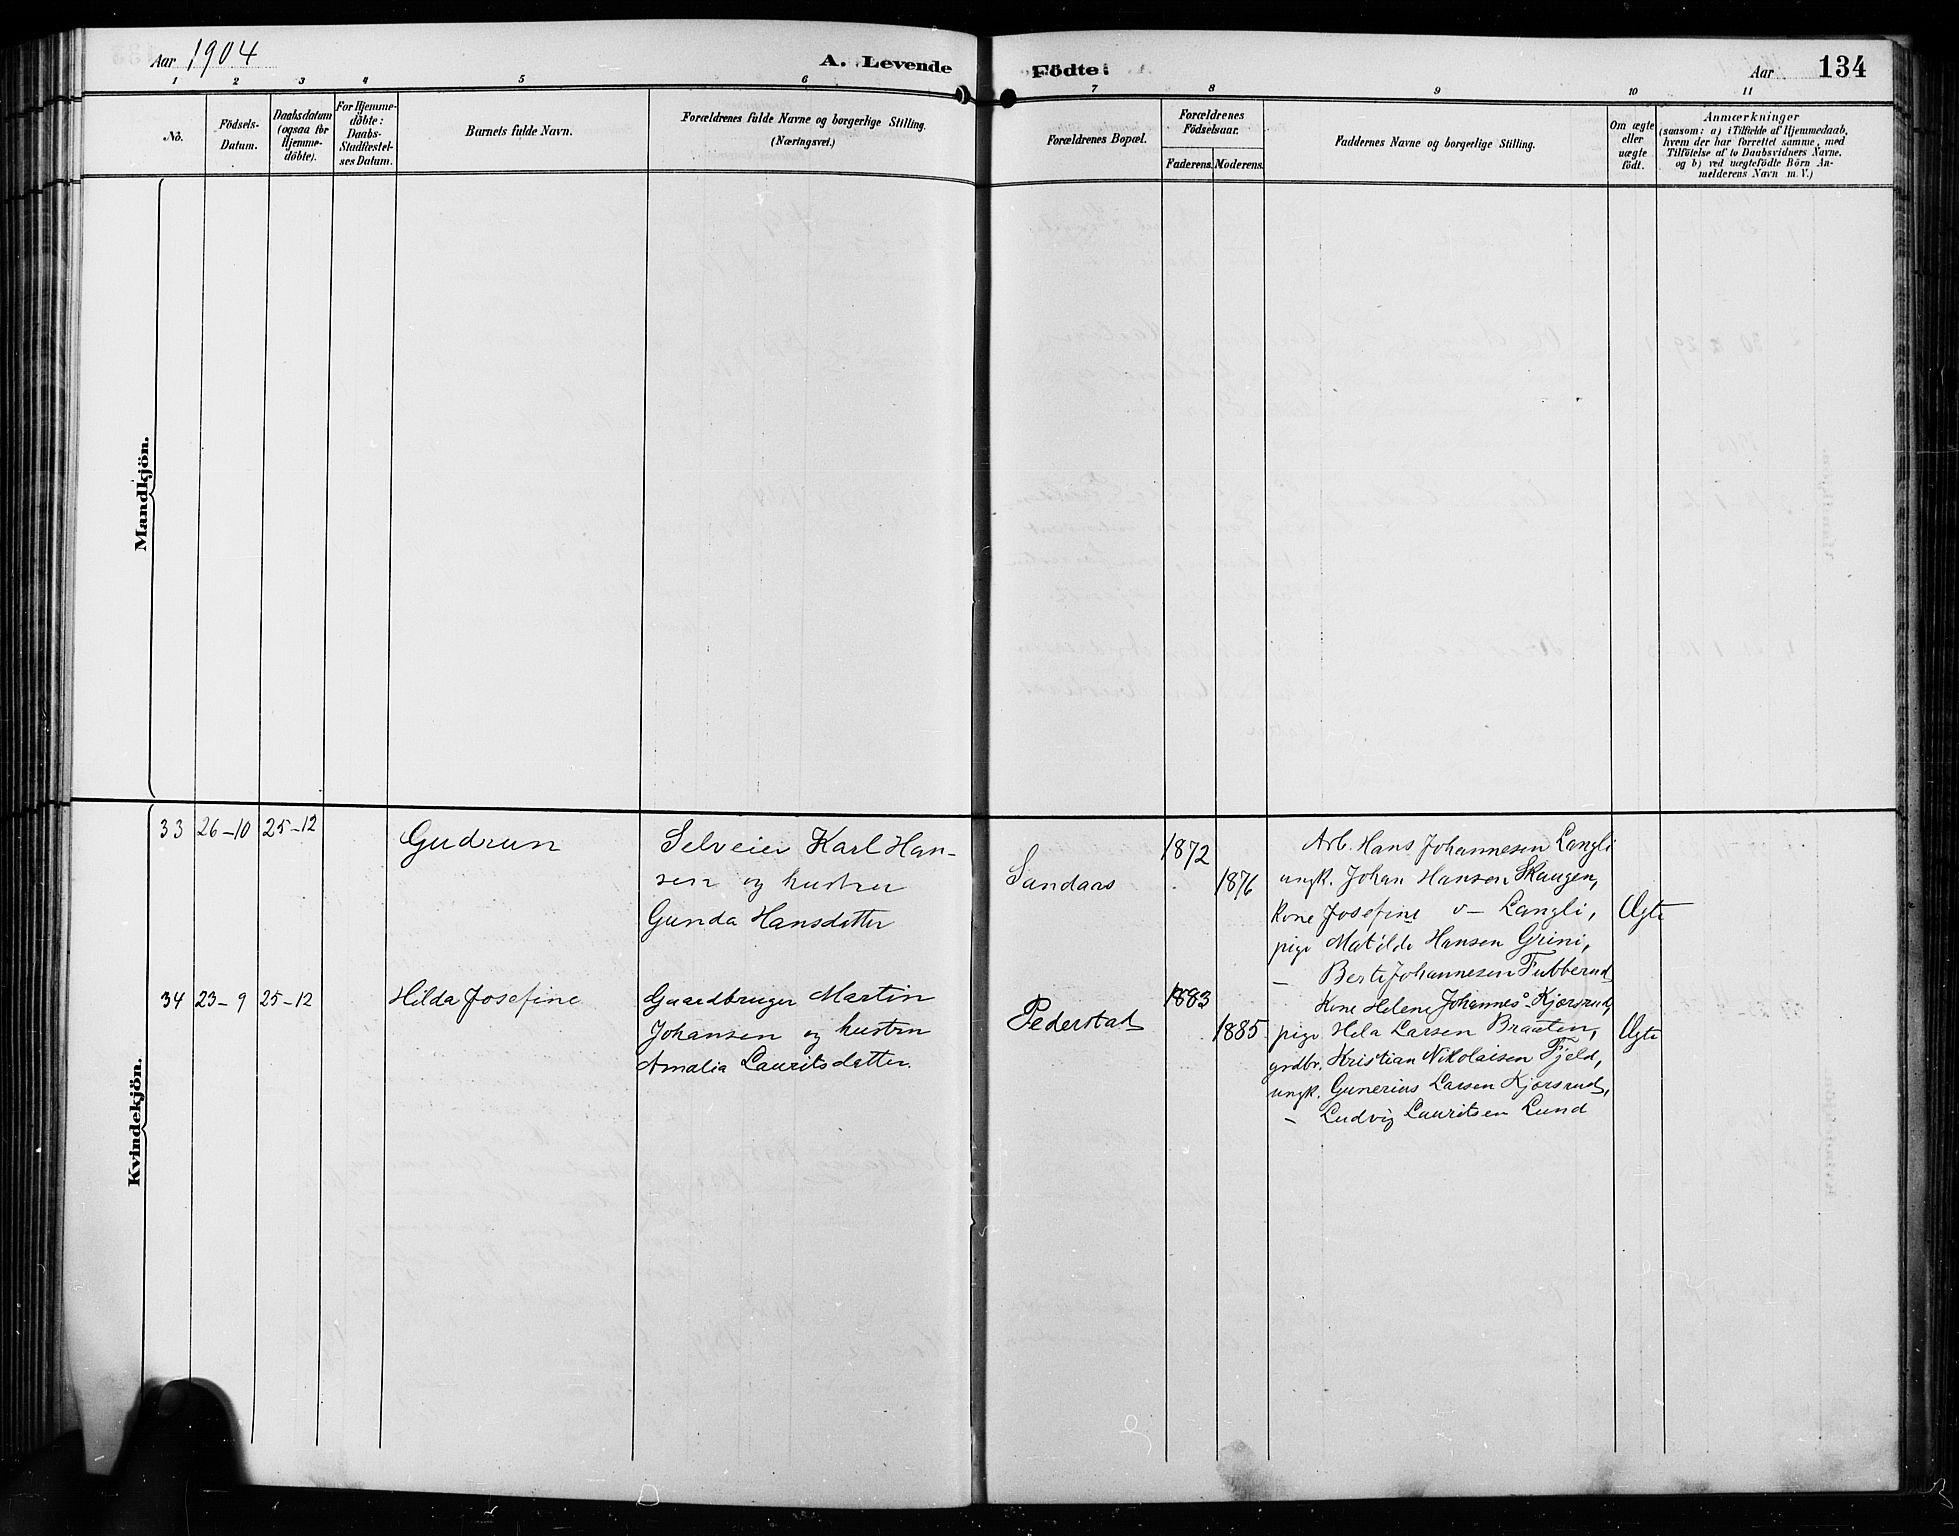 Aar 1904
A. Levende Födte:
Aar
134
1 2 3 4 5 6 7 8 9 10 11
No.
Födsels-
Datum.
Daabsdatum
(ogsaa for
Hjemme-
döbte).
For Hjemme-
döbte:
Daabs-
Stadfæstel-
ses Datum.
Barnets fulde Navn.
Forældrenes fulde Navne og borgerlige Stilling.
(Næringsvei.)
Forældrenes Bopæl.
Forældrenes
Födselsaar.
Faderens. Moderens.
Faddernes Navne og borgerlige Stilling.
Om ægte
eller
uægte
födt.
Anmærkninger
(saasom: a) i Tilfælde af Hjemmedaab,
hvem der har forrettet samme, med
Tilföielse af to Daabsvidners Navne,
og b) ved uægtefödte Börn An-
melderens Navn m. V.)
Mandkjön.
Kvindekjön.
33 26-10 25-12
Gudrun
Selveier Karl Han-
sen og hustru
Gunda Hansdatter
Sandaas
1872
1876
Arb. Hans Johannesen Langli
ungk. Johan Hansen Skaugen,
Kone Josefine o- Langli,
pige Matilde Hansen Grini,
— Berte Johannesen Tubberud
Ægte
34 23-9 25-12
Hilda Josefine
Gaardbruger Martin
Johansen og hustru
Amalia Lauritsdatter.
Pederstad
1883
1885
Kone Helene Johannes- Kjørsrud,
pige Hela Larsen Braaten,
grdbr. Kristian Nikolaisen Fjeld,
ungk. Gunerius Larsen Kjørsrud,
— Ludvig Lauritsen Lund
Ægte